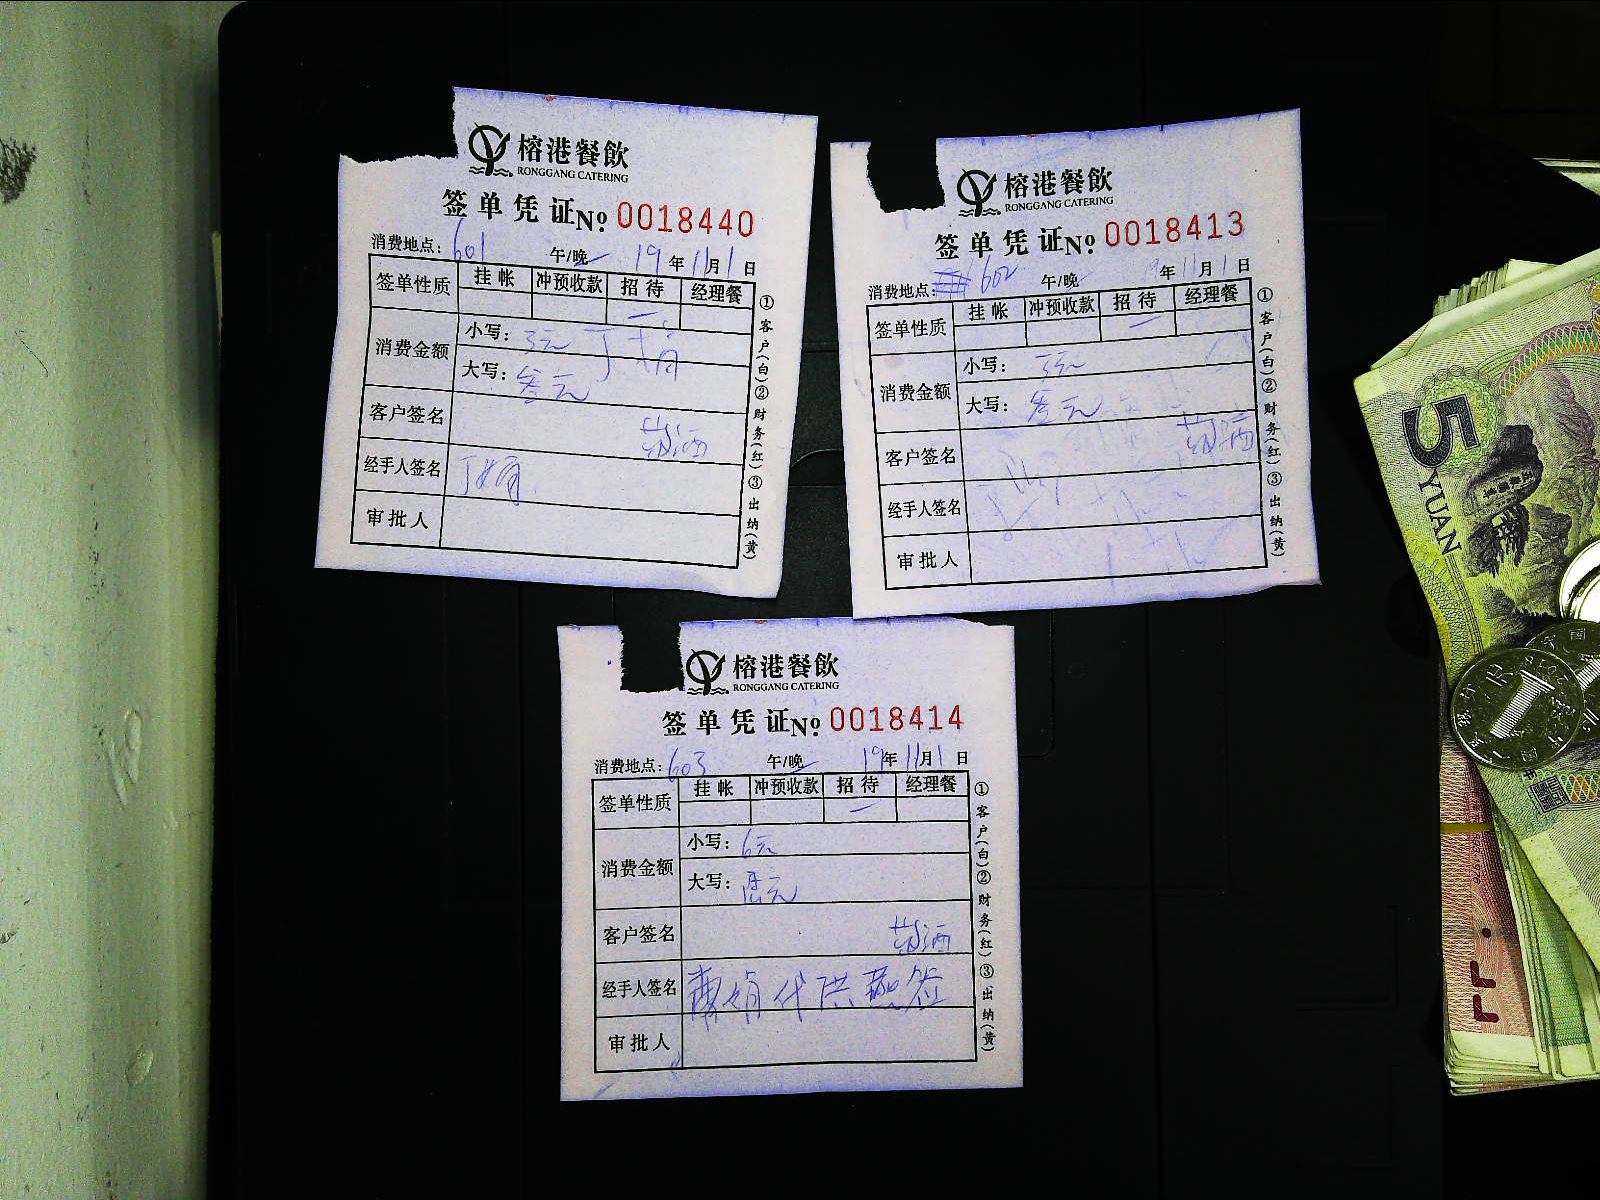 榕港餐飲
RONGGANG CATERING
签单凭证№ 0018440
消费地点: 601 午/晚 19年11月1日
签单性质 挂帐 冲预收款 招待 经理餐
消费金额 小写: 3元
大写: 叁元
客户签名
经手人签名 丁娟
审批人
①客户(白)②财务(红)③出纳(黄)
榕港餐飲
RONGGANG CATERING
签单凭证№ 0018413
消费地点: 602 午/晚 19年11月1日
签单性质 挂帐 冲预收款 招待 经理餐
消费金额 小写: 3元
大写: 叁元
客户签名
经手人签名
审批人
①客户(白)②财务(红)③出纳(黄)
榕港餐飲
RONGGANG CATERING
签单凭证№ 0018414
消费地点: 603 午/晚 19年11月1日
签单性质 挂帐 冲预收款 招待 经理餐
消费金额 小写: 6元
大写: 陆元
客户签名
经手人签名
审批人
①客户(白)②财务(红)③出纳(黄)
5
YUAN
1